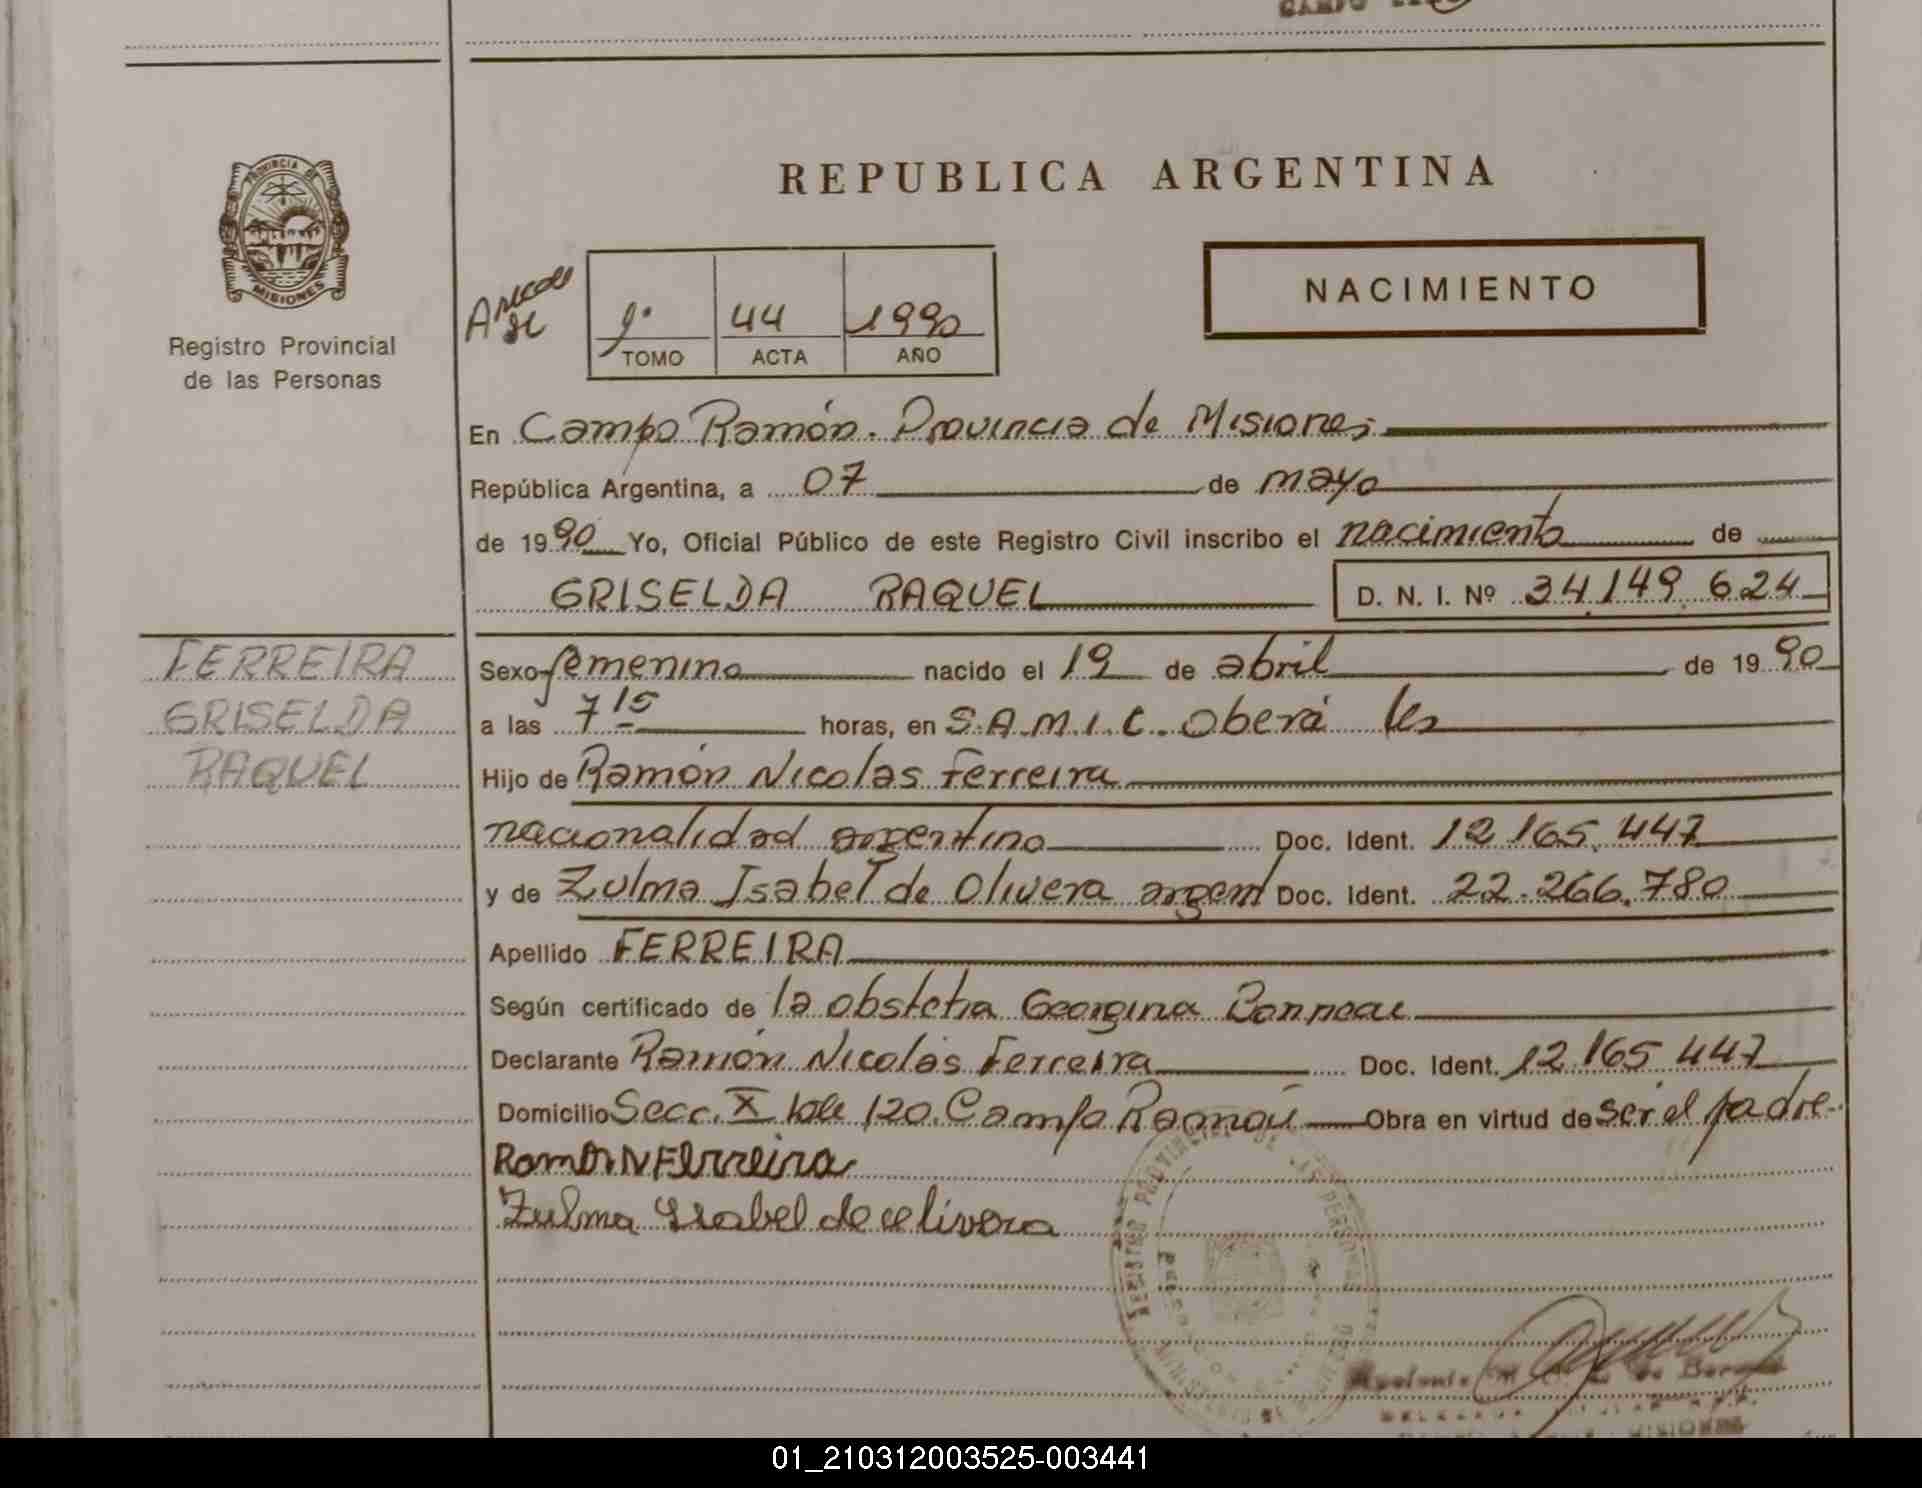 PROVINCIA DE
MISIONES
Registro Provincial
de las Personas
REPUBLICA ARGENTINA
NACIMIENTO
1º 44 1990
TOMO ACTA AÑO
En Campo Ramón. Provincia de Misiones
República Argentina, a 07 de mayo
de 1990 Yo, Oficial Público de este Registro Civil inscribo el nacimiento de
GRISELDA RAQUEL D. N. I. Nº 34.149.624
FERREIRA
GRISELDA
RAQUEL
Sexo femenino nacido el 19 de abril de 1990
a las 7 15 horas, en S.A.M.I.C. Oberá
Hijo de Ramón Nicolas Ferreira
nacionalidad argentino Doc. Ident. 12.165.447
y de Zulma Isabel de Olivera argent Doc. Ident. 22.266.780
Apellido FERREIRA
Según certificado de la obstetra Georgina Bonneau
Declarante Ramón Nicolás Ferreira Doc. Ident. 12.165.447
Domicilio Secc. X lote 120. Campo Ramón Obra en virtud de ser el padre
Ramon N Ferreira
Zulma Isabel de olivera
REGISTRO PROVINCIAL DE LAS PERSONAS
MISIONES
01_210312003525-003441